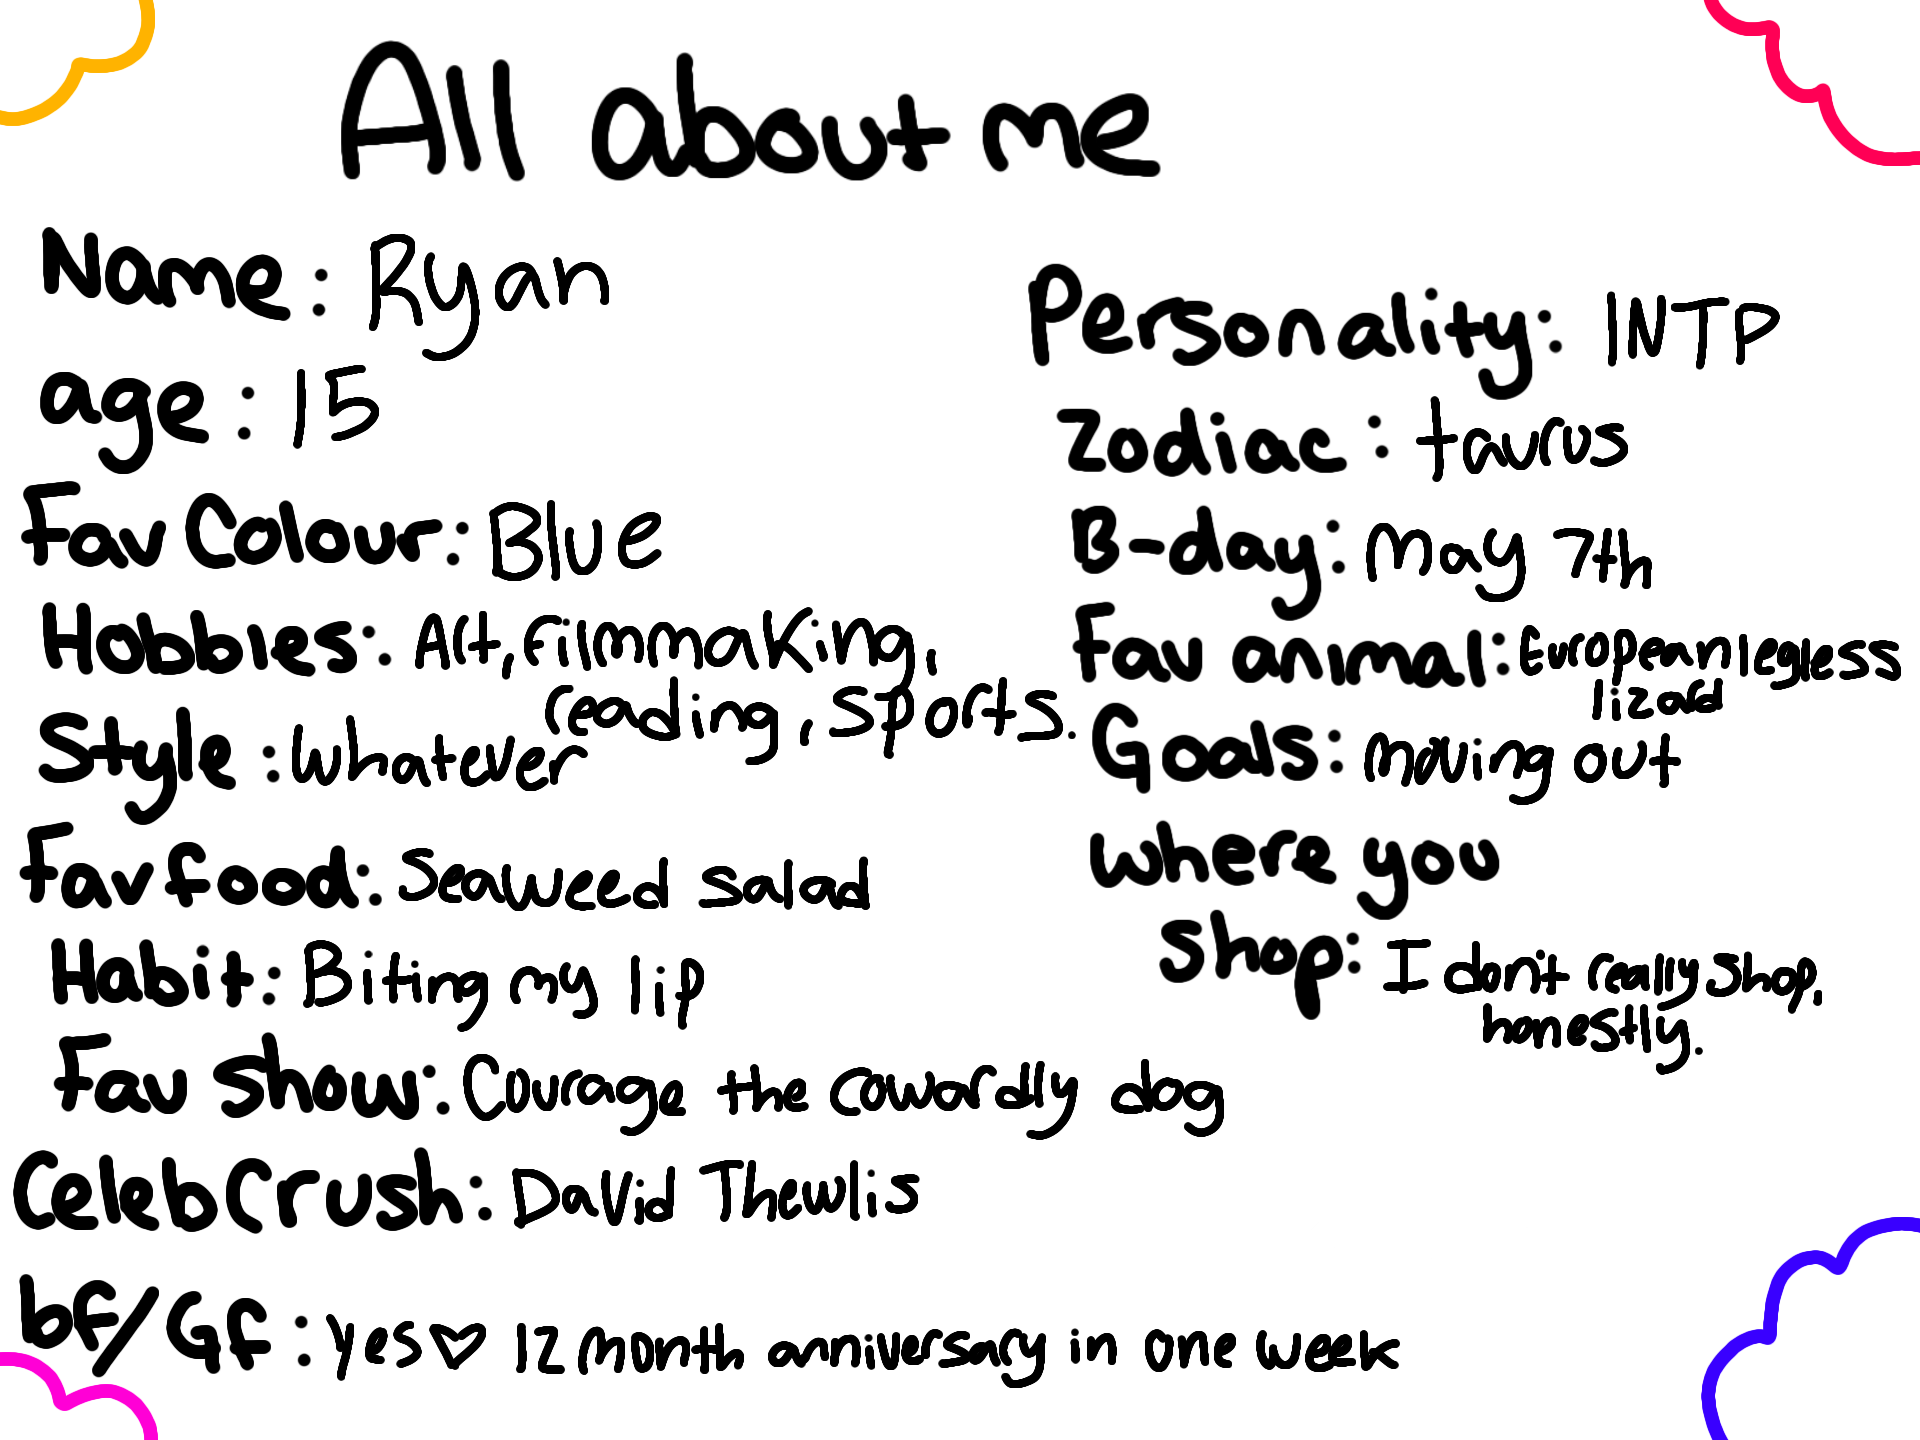 All about me
Name: Ryan
age: 15
Fav Colour: Blue
Hobbies: Art, filmmaking,
reading, sports.
Style: Whatever
Fav food: Seaweed salad
Habit: Biting my lip
Fav show: Courage the cowardly dog
Celeb Crush: David Thewlis
bf/Gf: yes♡ 12 month anniversary in one week
Personality: INTP
Zodiac: taurus
B-day: May 7th
Fav animal: European legless
lizard
Goals: moving out
where you
shop: I don't really shop,
honestly.